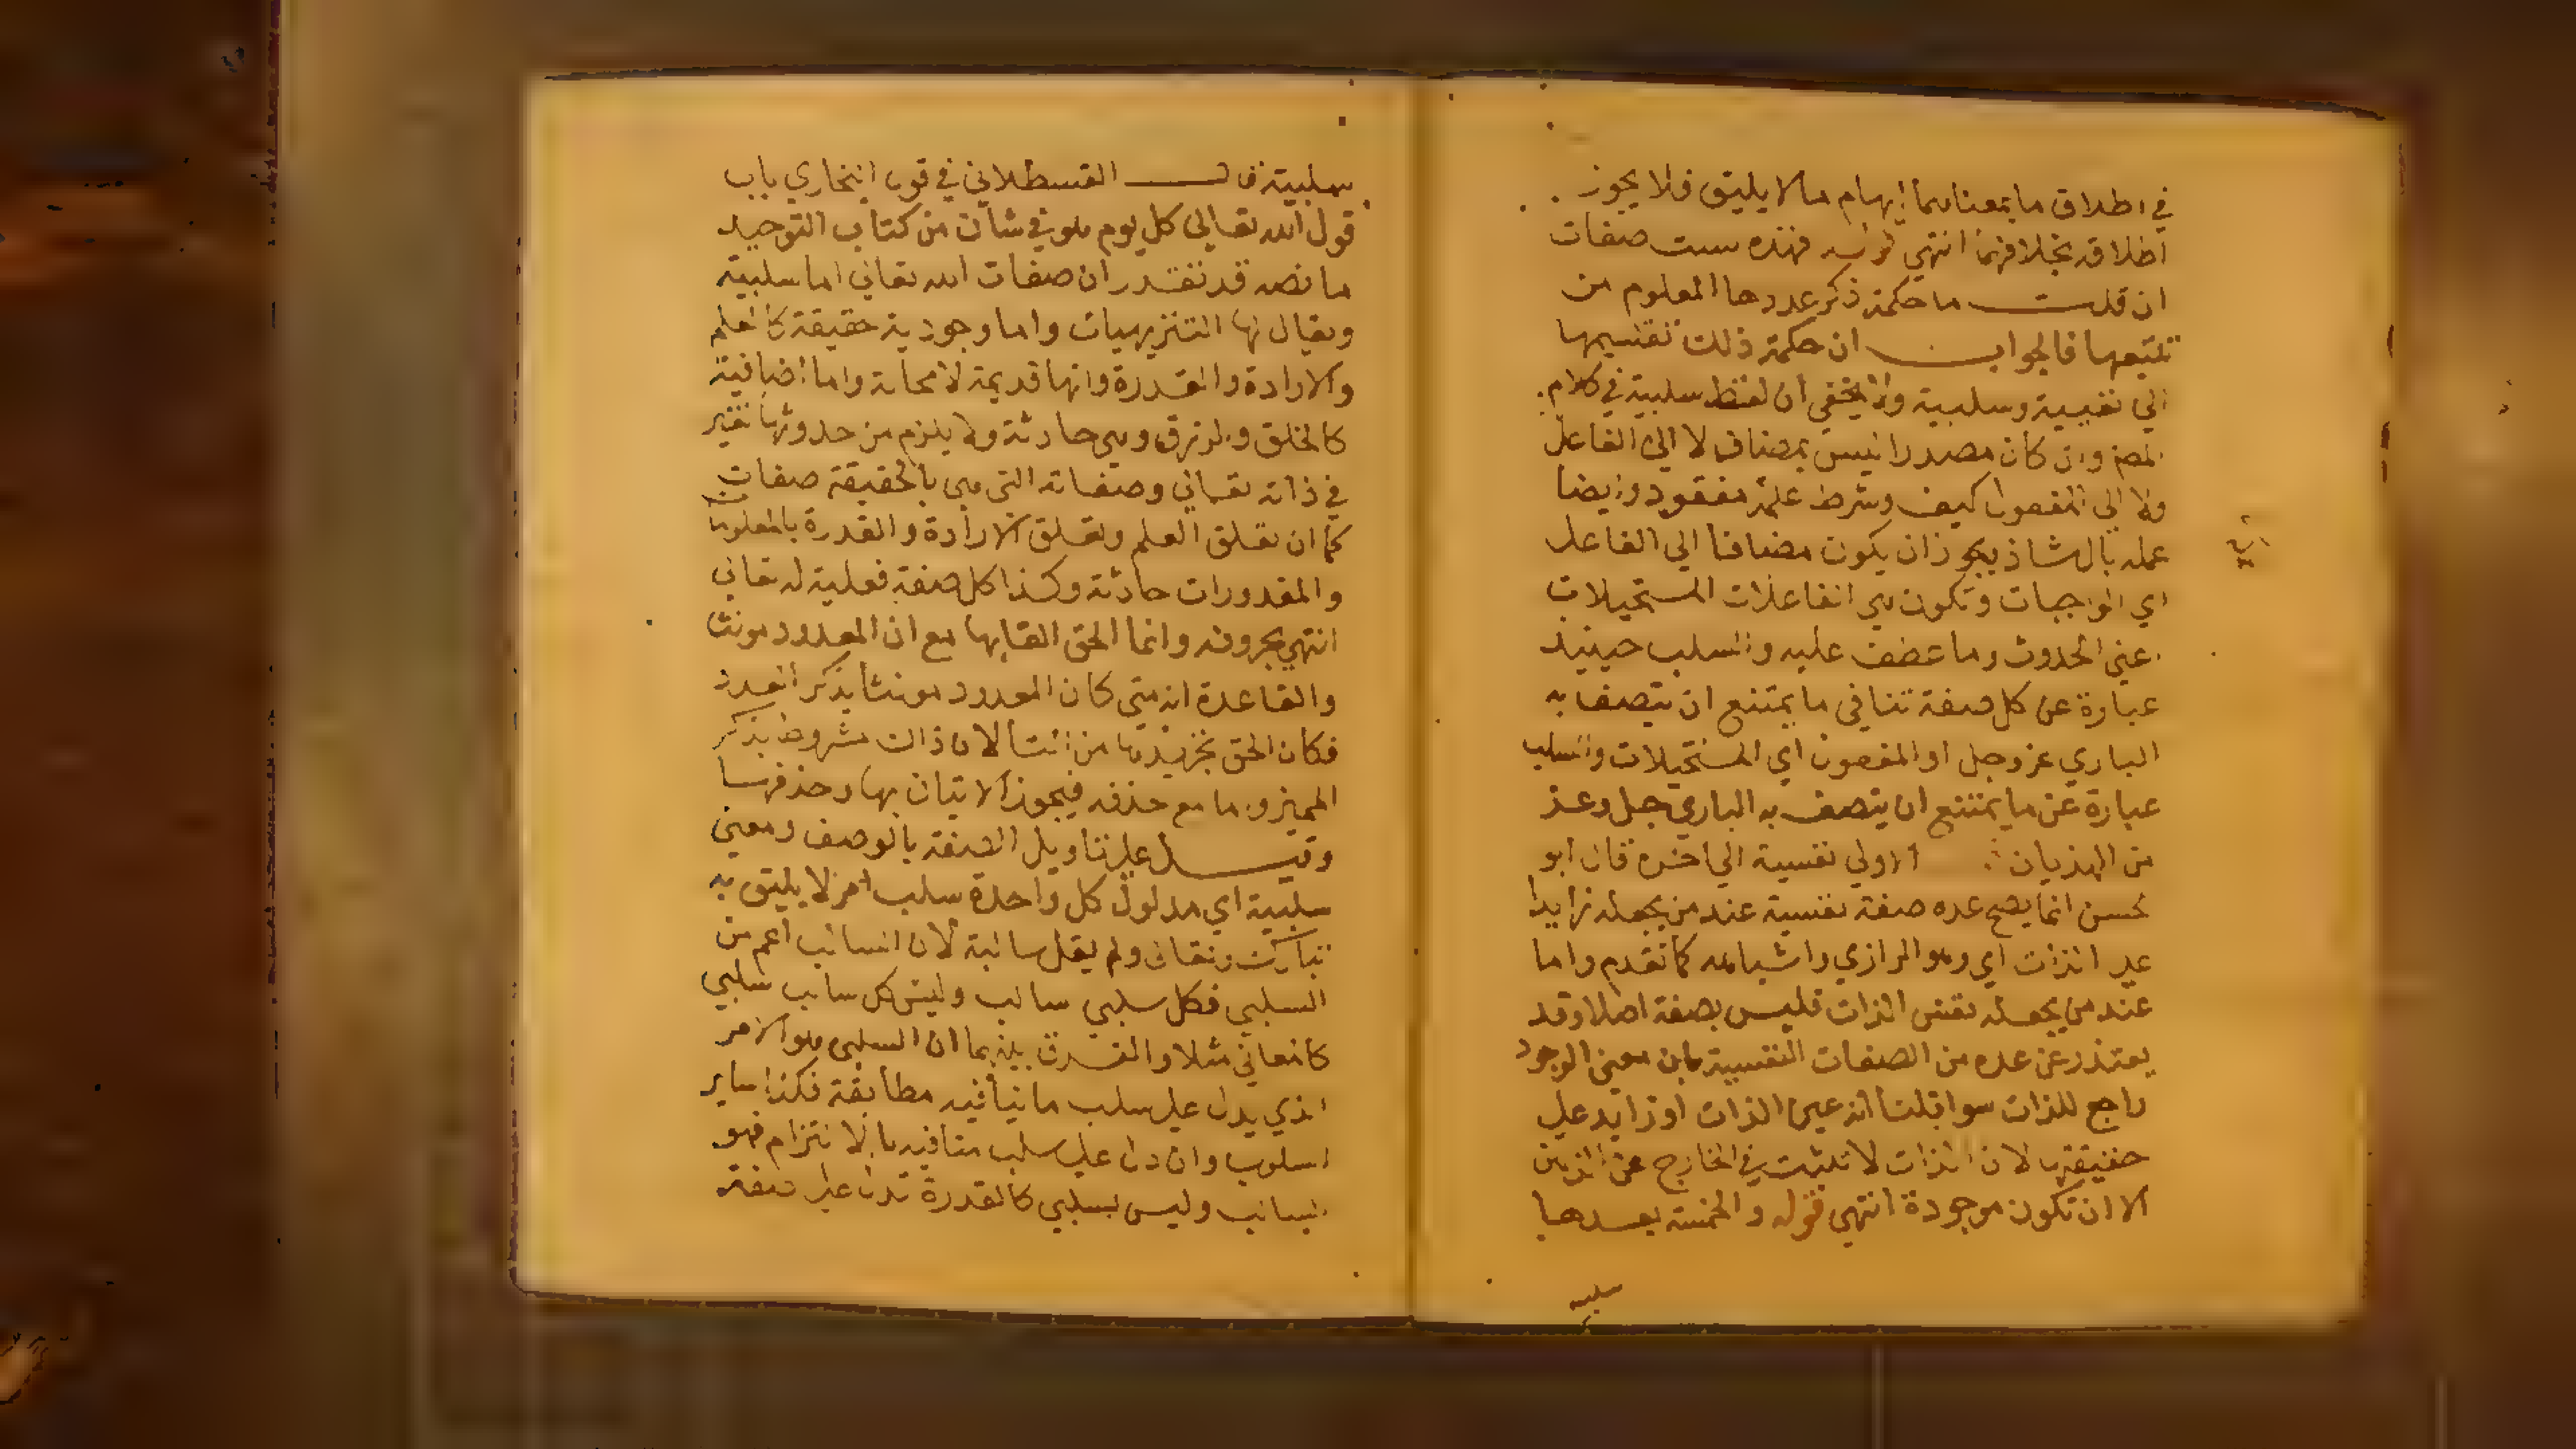 في اطلاق ما بمعناهما إيهام مالا يليق فلا يجوز
اطلاقه بخلافهما انتهى قوله فهذه ست صفات
ان قلت ما حكمة ذكر عددها المعلوم من
تتبعها فالجواب ان حكمة ذلك تقسيمها
الي نفسية وسلبية ولا يخفي ان لفظ سلبية في كلام
المص وان كان مصدرا ليس بمضاف لا الي الفاعل
ولا الي المفعول كيف وشرط عمله مفقود وايضا
عمله بال شاذ يجوز ان يكون مضافا الي الفاعل
اي الواجبات وتكون هي الفاعلات المستحيلات
اعني الحدوث وما عطف عليه والسلب حينيذ
عبارة عن كل صفة تنافي ما يمتنع ان يتصف به
الباري عز وجل او المفعول اي المستحيلات والسلب
عبارة عن ما يمتنع ان يتصف به الباري جل وعز
من الهذيان الاولي نفسية الي اخره قال ابو
لحسن انما يصح عده صفة نفسية عند من يجعله زايدا
علي الذات اي وهو الرازي واشباهه كما تقدم واما
عند من يجعله نفس الذات فليس بصفة اصلا وقد
يعتذر عن عده من الصفات النفسية بان معني الوجود
راجع للذات سوا قلنا انه عين الذات او زايد علي
حقيقتها لان الذات لا تثبت في الخارج عن الذهن
الا ان تكون موجودة انتهي قوله والخمسة بعدها
سلبية
سلبية قال القسطلاني في قول البخاري باب
قول الله تعالي كل يوم هو في شان من كتاب التوحيد
ما نصه قد تقدر ان صفات الله تعالي اما سلبية
ويقال لها التنزيهيات واما وجودية حقيقة كالعلم
والارادة والقدرة وانها قديمة لا محالة واما اضافية
كالخلق والرزق وهي حادثة ولا يلزم من حدوثها تغير
في ذاته تعالي وصفاته التي هي بالحقيقة صفات
كما ان تعلق العلم وتعلق الارادة والقدرة بالمعلومات
والمقدورات حادثة وكذا كل صفة فعلية له تعالي
انتهي بحروفه وانما الحق التا بها مع ان المعدود مونثا
والقاعدة انه متي كان المعدود مونثا يذكر العدد
فكان الحق تجريدها من التا لان ذالك مشروط بذكر
المميز واما مع حذفه فيجوز الاتيان بها وحذفها
وقيل علي تاويل الصفة بالوصف ومعني
سلبية اي مدلول كل واحدة سلب امر لا يليق به
تبارك وتعالي ولم يقل سالبة لان السالب اعم من
السلبي فكل سلبي سالب وليس كل سالب سلبي
كالمعاني مثلا والفرق بينهما ان السلبي هو الامر
الذي يدل علي سلب ما ينافيه مطابقة فكذا ساير
السلوب وان دل علي سلب منافيه بالالتزام فهو
السالب وليس بسلبي كالقدرة تدل علي صفة